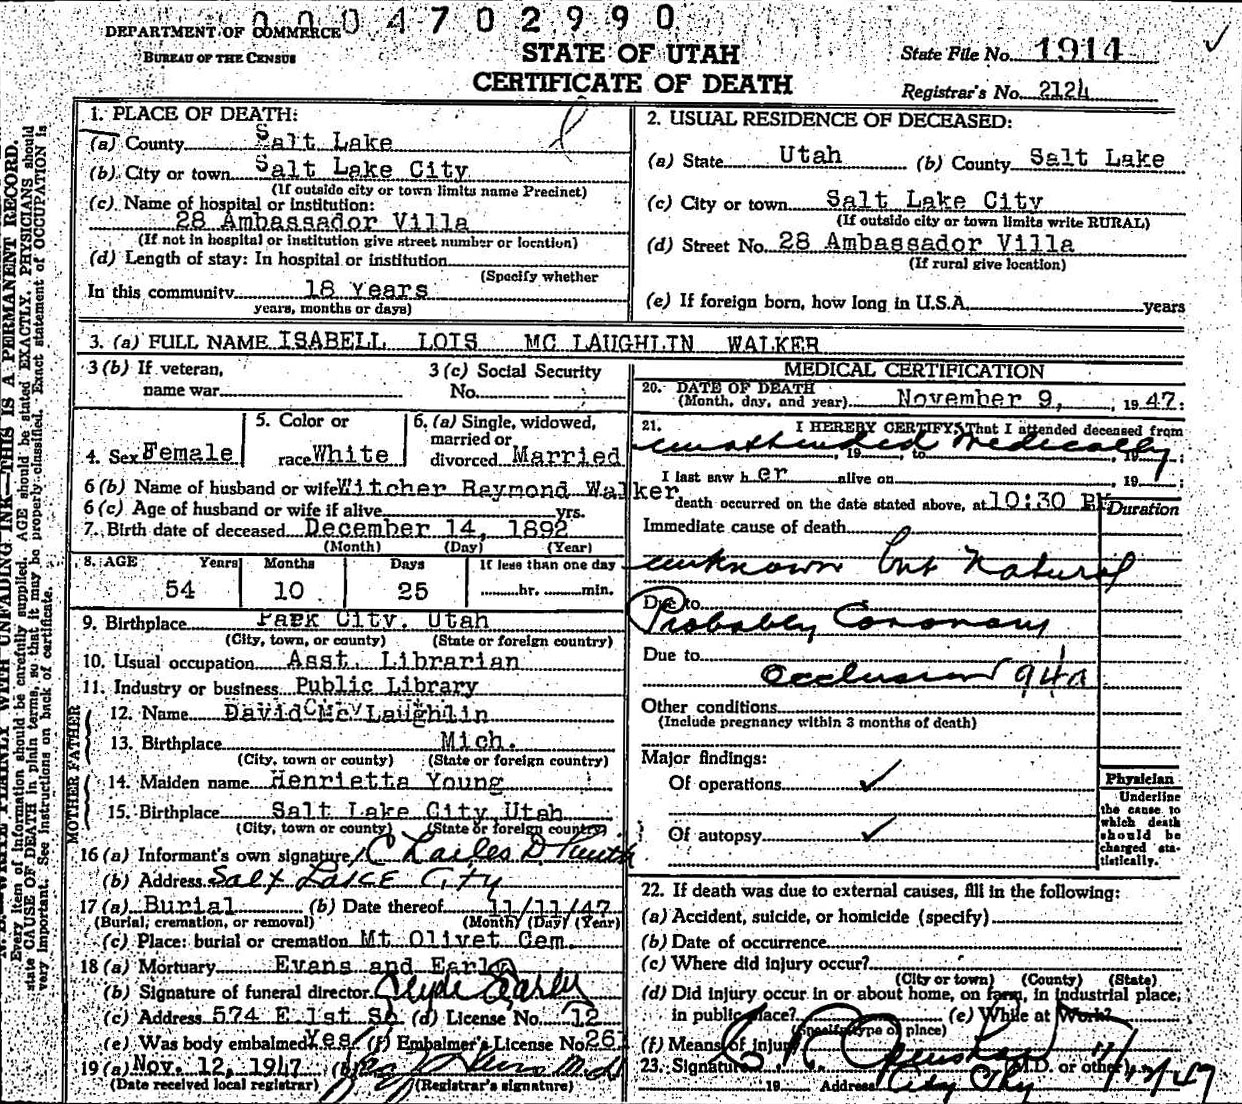 0004702990
DEPARTMENT OF COMMERCE
BUREAU OF THE CENSUS
STATE OF UTAH
CERTIFICATE OF DEATH
State File No. 1914
Registrar's No. 2124
1. PLACE OF DEATH:
(a) County Salt Lake
(b) City or town Salt Lake City
(If outside city or town limits name Precinct)
(c) Name of hospital or institution:
28 Ambassador Villa
(If not in hospital or institution give street number or location)
(d) Length of stay: In hospital or institution
(Specify whether
In this community 18 Years
years, months or days)
2. USUAL RESIDENCE OF DECEASED:
(a) State Utah (b) County Salt Lake
(c) City or town Salt Lake City
(If outside city or town limits write RURAL)
(d) Street No. 28 Ambassador Villa
(If rural give location)
(e) If foreign born, how long in U.S.A. years
3. (a) FULL NAME ISABELL LOIS MC LAUGHLIN WALKER
3 (b) If veteran,
name war
3 (c) Social Security
No.
4. Sex Female
5. Color or
race White
6. (a) Single, widowed,
married or
divorced Married
6 (b) Name of husband or wife Witcher Raymond Walker
6 (c) Age of husband or wife if alive yrs.
7. Birth date of deceased December 14, 1892
(Month) (Day) (Year)
8. AGE Years Months Days If less than one day
54 10 25 hr. min.
9. Birthplace Park City, Utah
(City, town, or county) (State or foreign country)
10. Usual occupation Asst. Librarian
11. Industry or business Public Library
FATHER
12. Name David Mc Laughlin
13. Birthplace Mich.
(City, town or county) (State or foreign country)
MOTHER
14. Maiden name Henrietta Young
15. Birthplace Salt Lake City Utah
(City, town or county) (State or foreign country)
16 (a) Informant's own signature Charles D.
(b) Address Salt Lake City
17 (a) Burial (b) Date thereof 11/11/47
(Burial; cremation, or removal) (Month) (Day) (Year)
(c) Place: burial or cremation Mt Olivet Cem.
18 (a) Mortuary Evans and Early
(b) Signature of funeral director Clyde Early
(c) Address 574 E 1st So (d) License No. 12
(e) Was body embalmed? Yes (f) Embalmer's License No. 261
19 (a) Nov. 12, 1947 (b) M.D.
(Date received local registrar) (Registrar's signature)
MEDICAL CERTIFICATION
20. DATE OF DEATH
(Month, day, and year) November 9, , 1947
21. I HEREBY CERTIFY, That I attended deceased from
unattended Medically , 19 , to , 19 ;
I last saw h er alive on , 19 ;
death occurred on the date stated above, at 10:30 PM
Duration
Immediate cause of death
unknown but Natural
Due to
Probably Coronary
Due to
Occlusion 94a
Other conditions
(Include pregnancy within 3 months of death)
Major findings:
Of operations ✓
Of autopsy ✓
Physician
Underline
the cause to
which death
should be
charged sta-
tistically.
22. If death was due to external causes, fill in the following:
(a) Accident, suicide, or homicide (specify)
(b) Date of occurrence
(c) Where did injury occur?
(City or town) (County) (State)
(d) Did injury occur in or about home, on farm, in industrial place,
in public place? (e) While at Work?
(Specify type of place)
(f) Means of injury
23. Signature M.D. or other
19 Address City 11/12/47
N. B.—WRITE PLAINLY WITH UNFADING INK—THIS IS A PERMANENT RECORD.
Every item of information should be carefully supplied. AGE should be stated EXACTLY. PHYSICIANS should
state CAUSE OF DEATH in plain terms, so that it may be properly classified. Exact statement of OCCUPATION is
very important. See instructions on back of certificate.